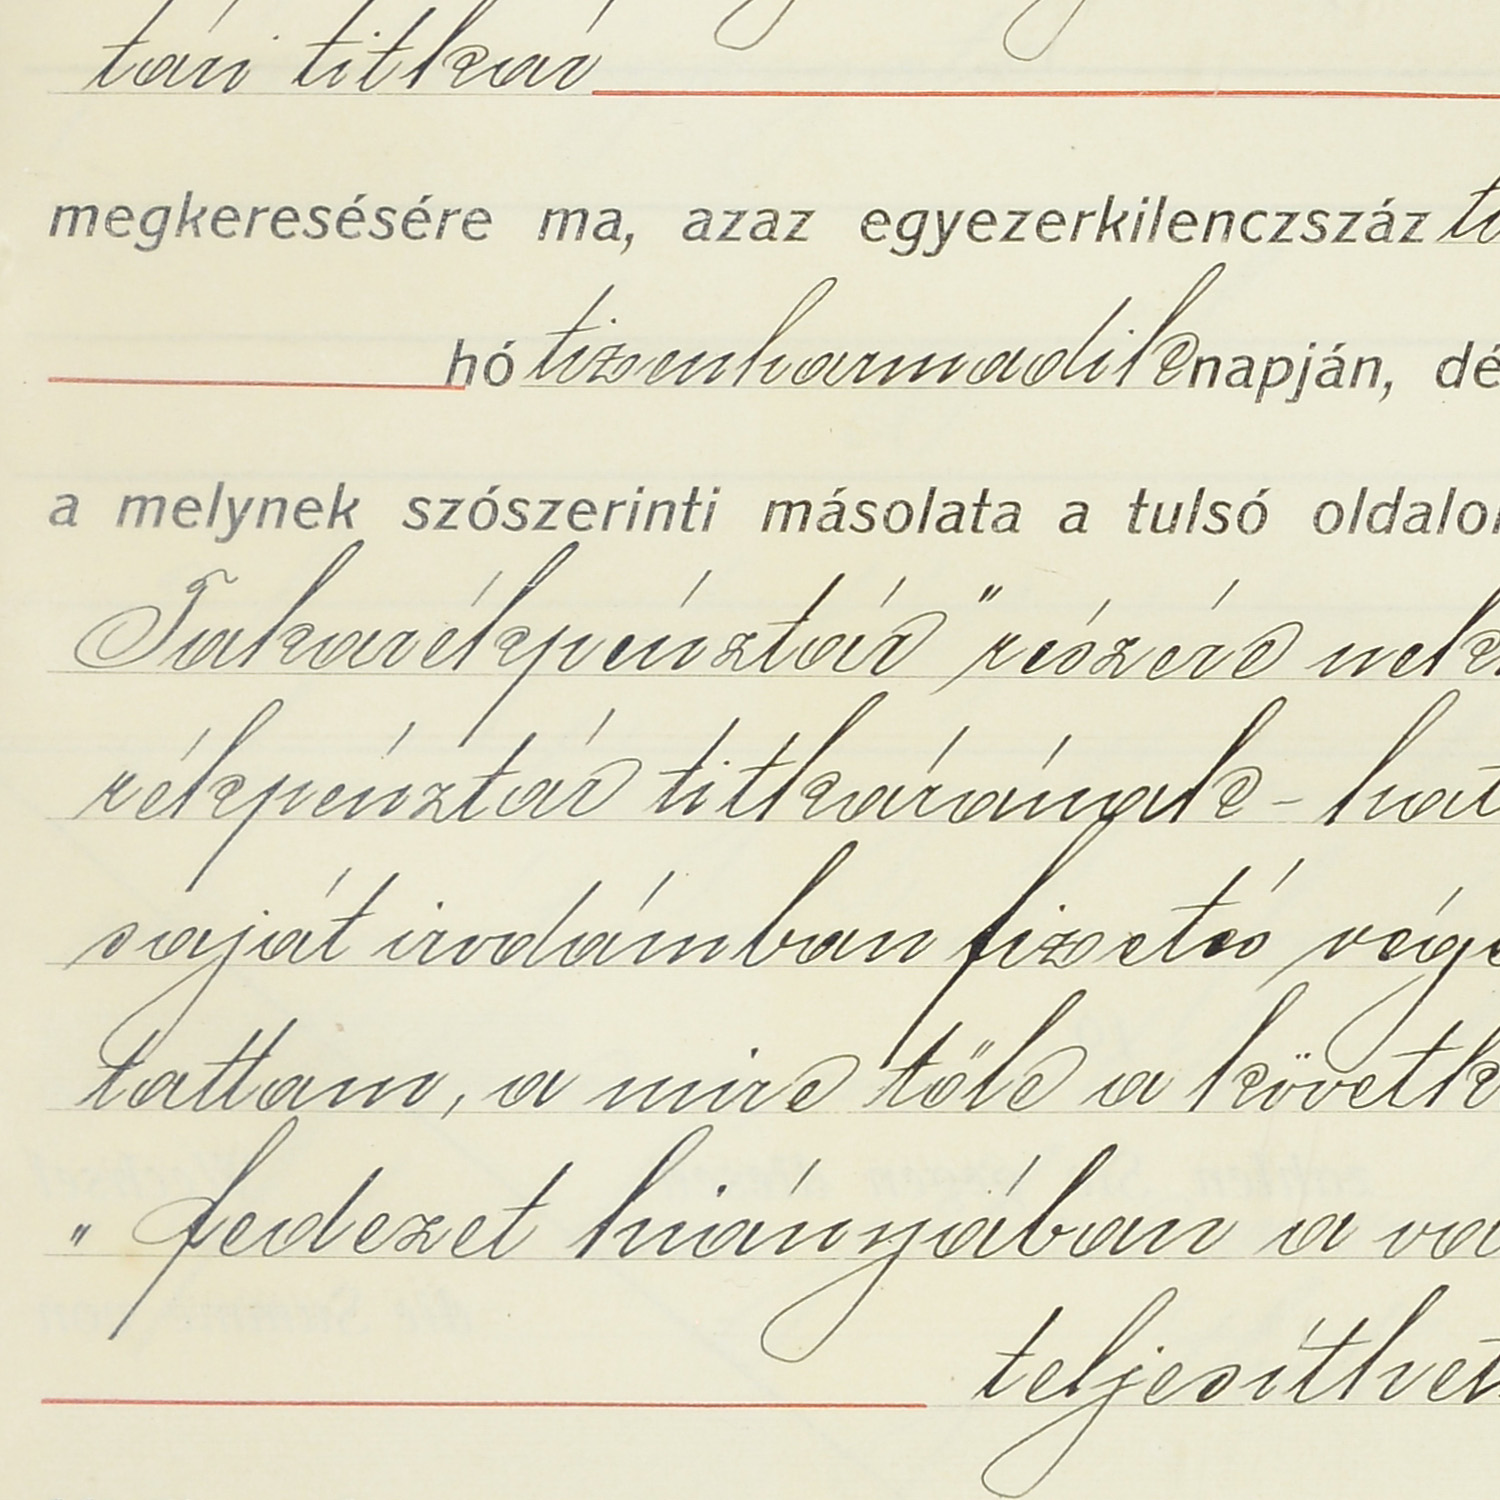 tári titkár
megkeresésére ma, azaz egyezerkilenczszáz ti
hó tizenharmadik napján, dé
a melynek szószerinti másolata a tulsó oldalon
Takarékpénztár" részére nek
rékpénztár titkárának - hat
saját irodámban fizető vége
tattam, a mire tőle a követk
"Fedezet hiányában a va
teljesíthet